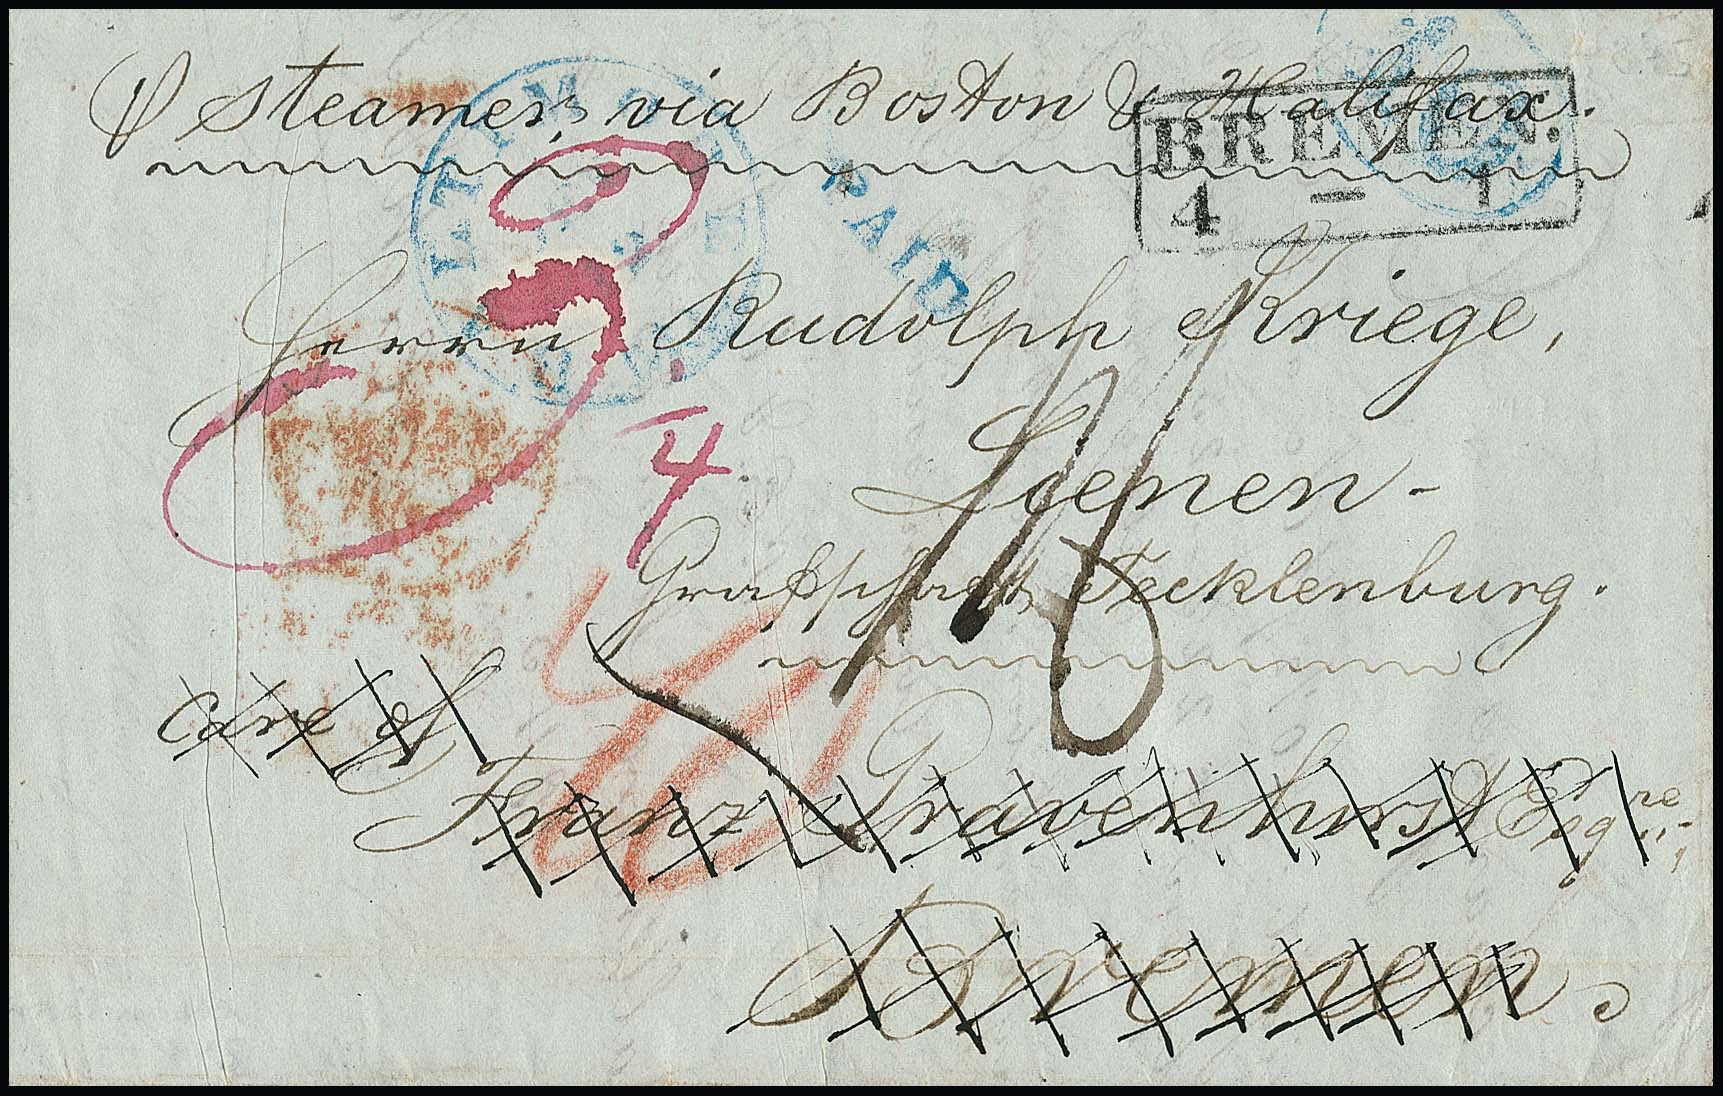 p Steamer, via Boston & Halifax.
BREMEN.
4 — 1
PAID
Herrn Rudolph Kriege,
Lienen -
4
Grafschaft Tecklenburg.
care of
Franz Gravenhorst Esqre,
Bremen.